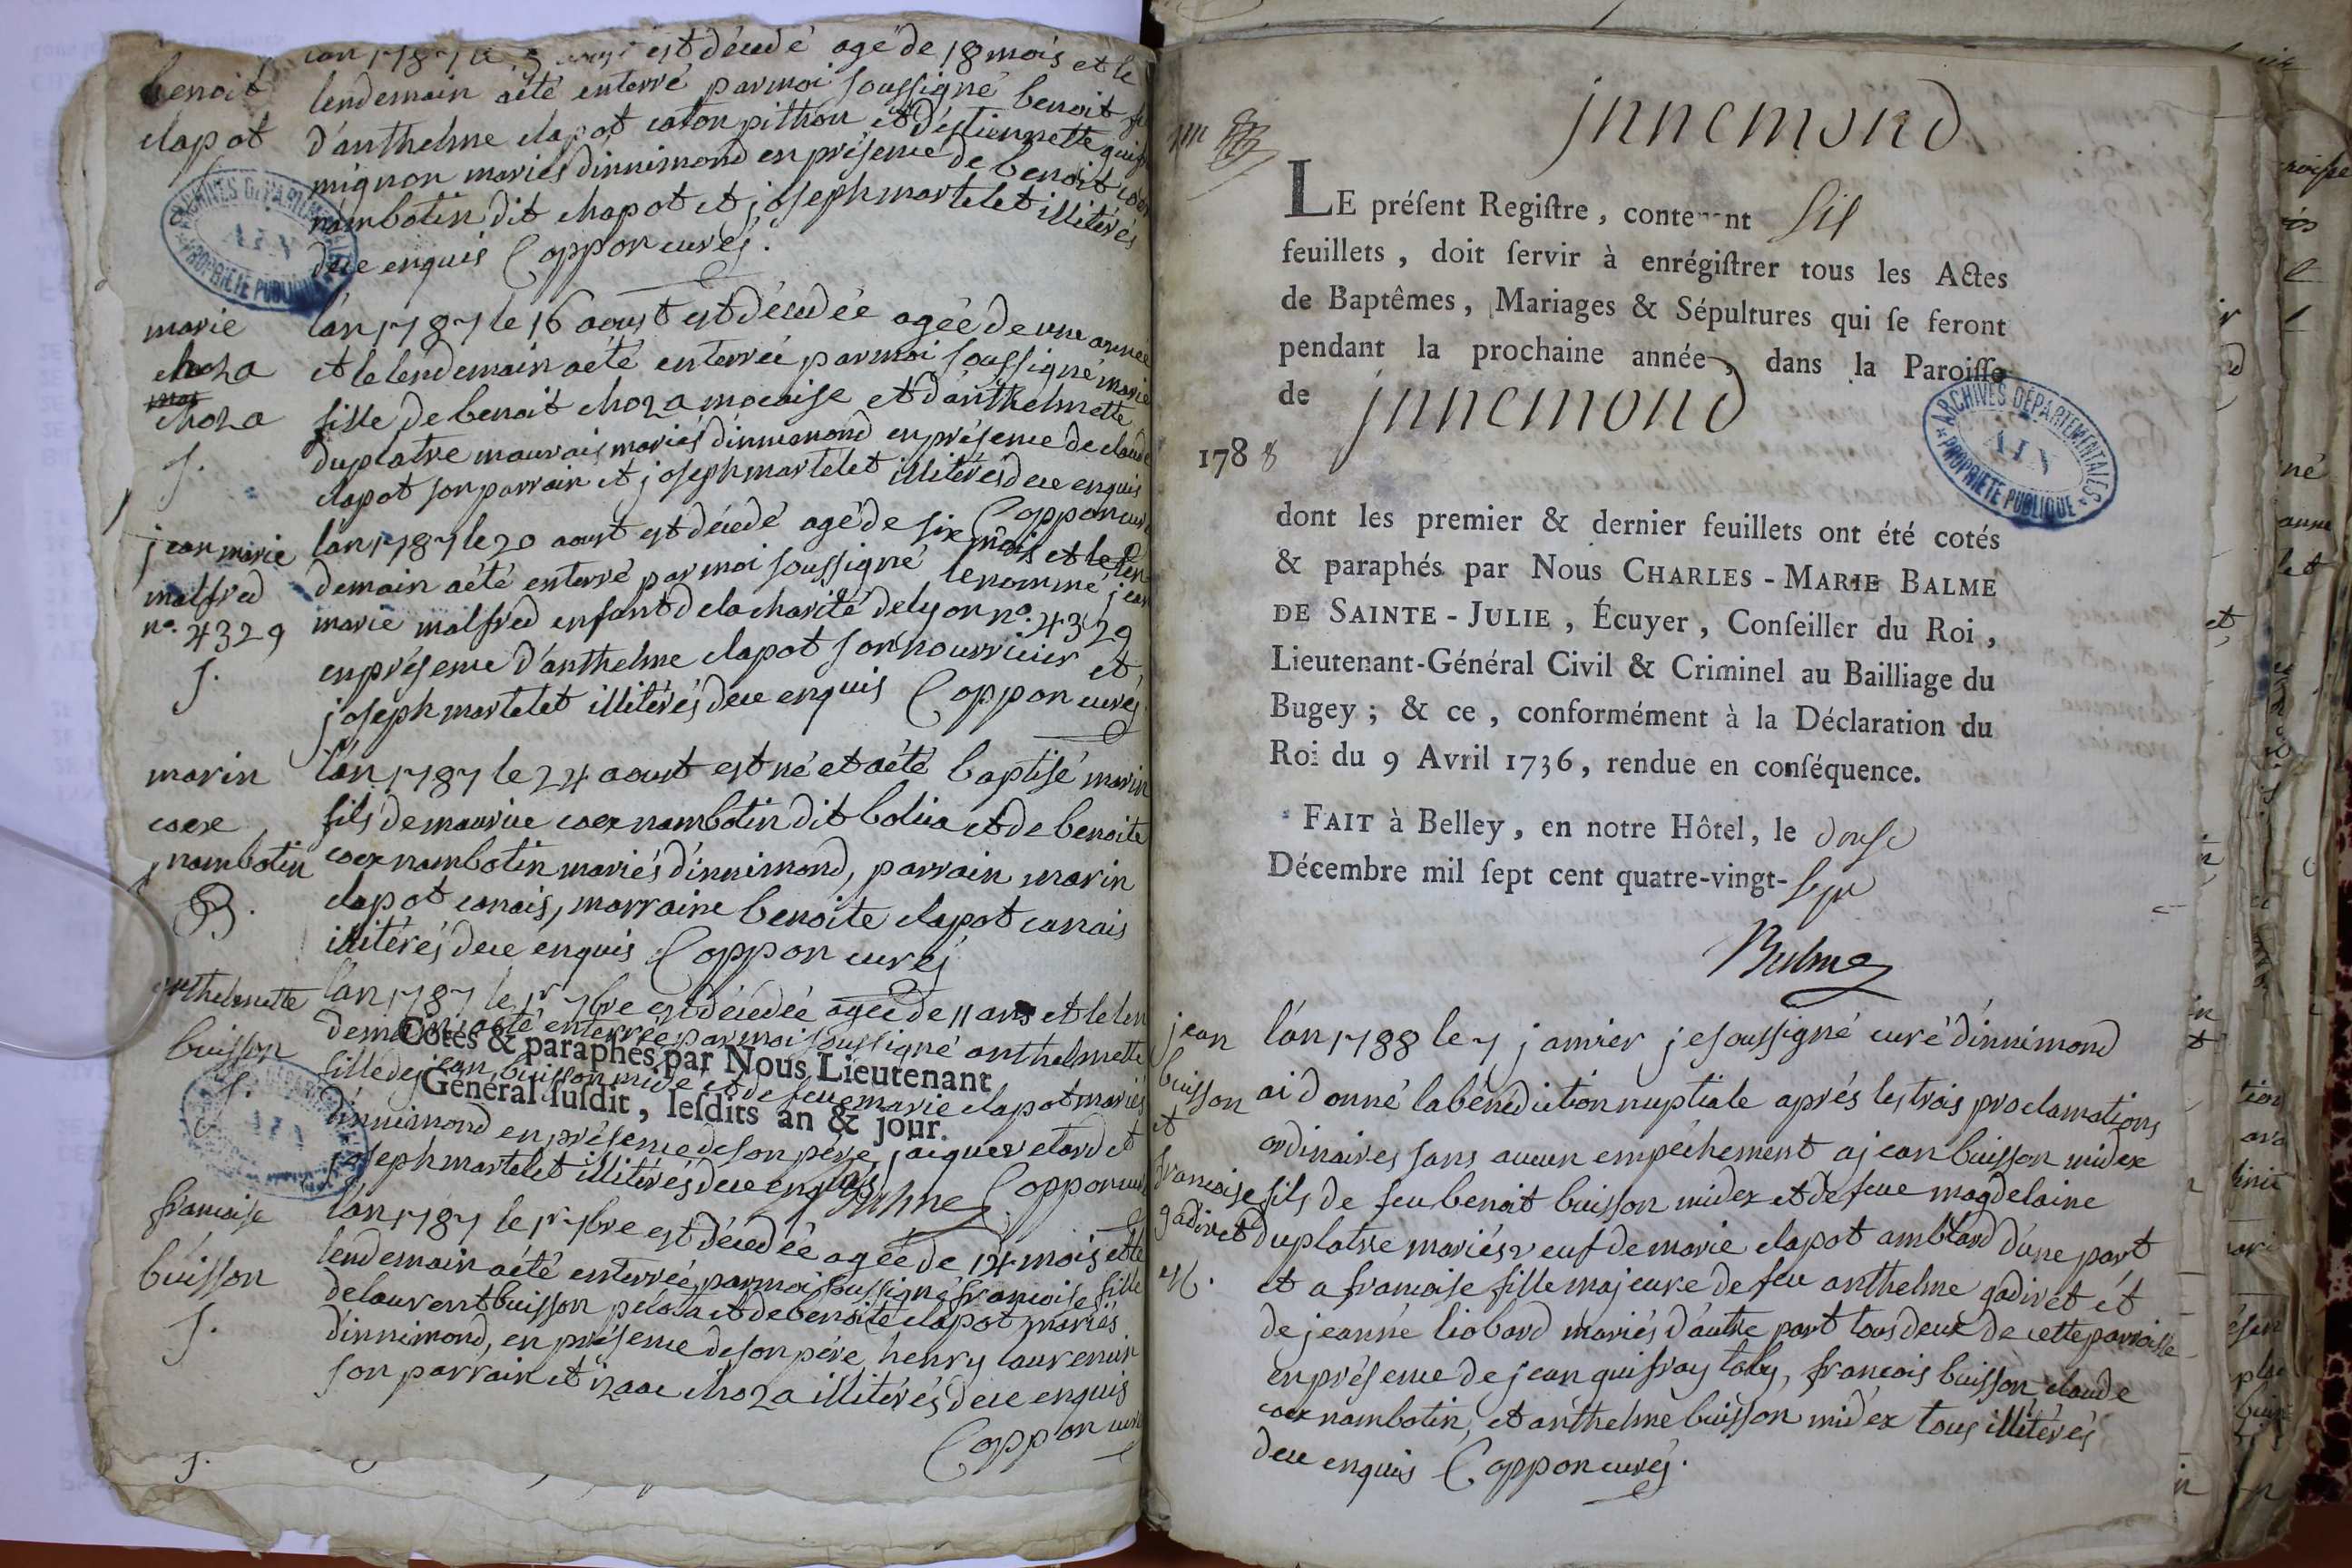 benoit
clapot
est décédé agé de 18 mois et le
lendemain aété enterré parmoi soussigné benoit
d'anthelme clapot caton pithion et d'estiennette
mignon mariés dinnimond en présence de benoit
nambotin dit chapot et joseph martelet illitérés
dece enquis Coppon curé
ARCHIVES DÉPARTEMENTALES
AIN
PROPRIÉTÉ PUBLIQUE
marie
choza
choza
s.
lan 1787 le 16 aoust est décédée agée de une année
et le lendemain aété enterrée parmoi soussigné marie
fille de benoit choza mocaise et d'anthelmette
duplatre mauvais mariés dinnimond en présence de claude
clapot son parrain et joseph martelet illitérés dece enquis
Coppon curé
jean marie
malfred
n°. 4329
s.
lan 1787 le 20 aoust est décédé agé de six mois et le len
demain aété enterré parmoi soussigné le nommé jean
marie malfred enfant dela charité de lyon n°. 4329
en présence d'anthelme clapot son nourricier et
joseph martelet illitérés dece enquis Coppon curé
marin
coex
nambotin
B.
lan 1787 le 24 aoust est né et aété baptisé marin
fils de maurice coex nambotin dit bolia et de benoite
coex nambotin mariés d'innimond, parrain marin
clapot canais, marraine benoite clapot canais
illitérés dece enquis Coppon curé
anthelmette
buisson
s.
lan 1787 le 1r 7bre est décédée agée de 11 ans et le len
demain aété enterrée parmoi soussigné anthelmette
fille de jean buisson mide et de feue marie clapot mariés
dinnimond en présence de son père, jacques retord et
joseph martelet illitérés dece enquis Coppon curé
Cotés & paraphés par Nous Lieutenant
Général susdit, lesdits an & jour.
Balme
francoise
buisson
s.
lan 1787 le 1r 7bre est décédée agée de 14 mois et le
lendemain aété enterrée parmoi soussigné francoise fille
de laurent buisson et de benoite clapot mariés
d'innimond, en présence de son père, henry laurencin
son parrain et izaac choza illitérés dece enquis
Coppon curé
s.
jnnemond
LE préſent Regiſtre, contenant Six
feuillets, doit ſervir à enrégiſtrer tous les Actes
de Baptêmes, Mariages & Sépultures qui ſe feront
pendant la prochaine année, dans la Paroiſſe
de jnnemond
1788
ARCHIVES DÉPARTEMENTALES
AIN
PROPRIÉTÉ PUBLIQUE
dont les premier & dernier feuillets ont été cotés
& paraphés par Nous CHARLES-MARIE BALME
DE SAINTE-JULIE, Écuyer, Conſeiller du Roi,
Lieutenant-Général Civil & Criminel au Bailliage du
Bugey; & ce, conformément à la Déclaration du
Roi du 9 Avril 1736, rendue en conſéquence.
FAIT à Belley, en notre Hôtel, le douse
Décembre mil ſept cent quatre-vingt-sept
Balme
jean
buisson
et
francoise
gadivet
M.
lán 1788 le 7 janvier je soussigné curé d'innimond
ai donné la bénédiction nuptiale aprés les trois proclamations
ordinaires sans aucun empêchement a jean buisson midex
fils de feu benoit buisson midex et de feue magdelaine
duplatre mariés veuf de marie clapot amblard dúne part
et a francoise fille majeure de feu anthelme gadivet et
de jeanne liobard mariés d'autre part tous deux de cette parroisse
en présence de jean guifray taby, francois buisson, claude
coex nambotin, et anthelme buisson midex tous illitérés
dece enquis Coppon curé.